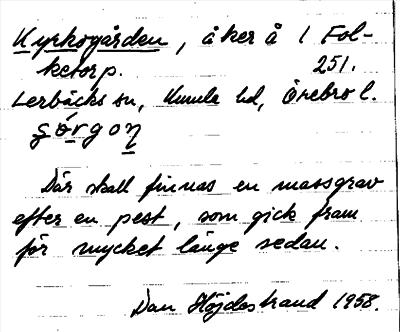 Kyrkogården, åker å 1 Fol-
ketorp. 251.
Lerbäcks sn, Kumla hd, Örebro l.
Där skall finnas en massgrav
efter en pest, som gick fram
för mycket länge sedan.
Dan Höjdestrand 1958.